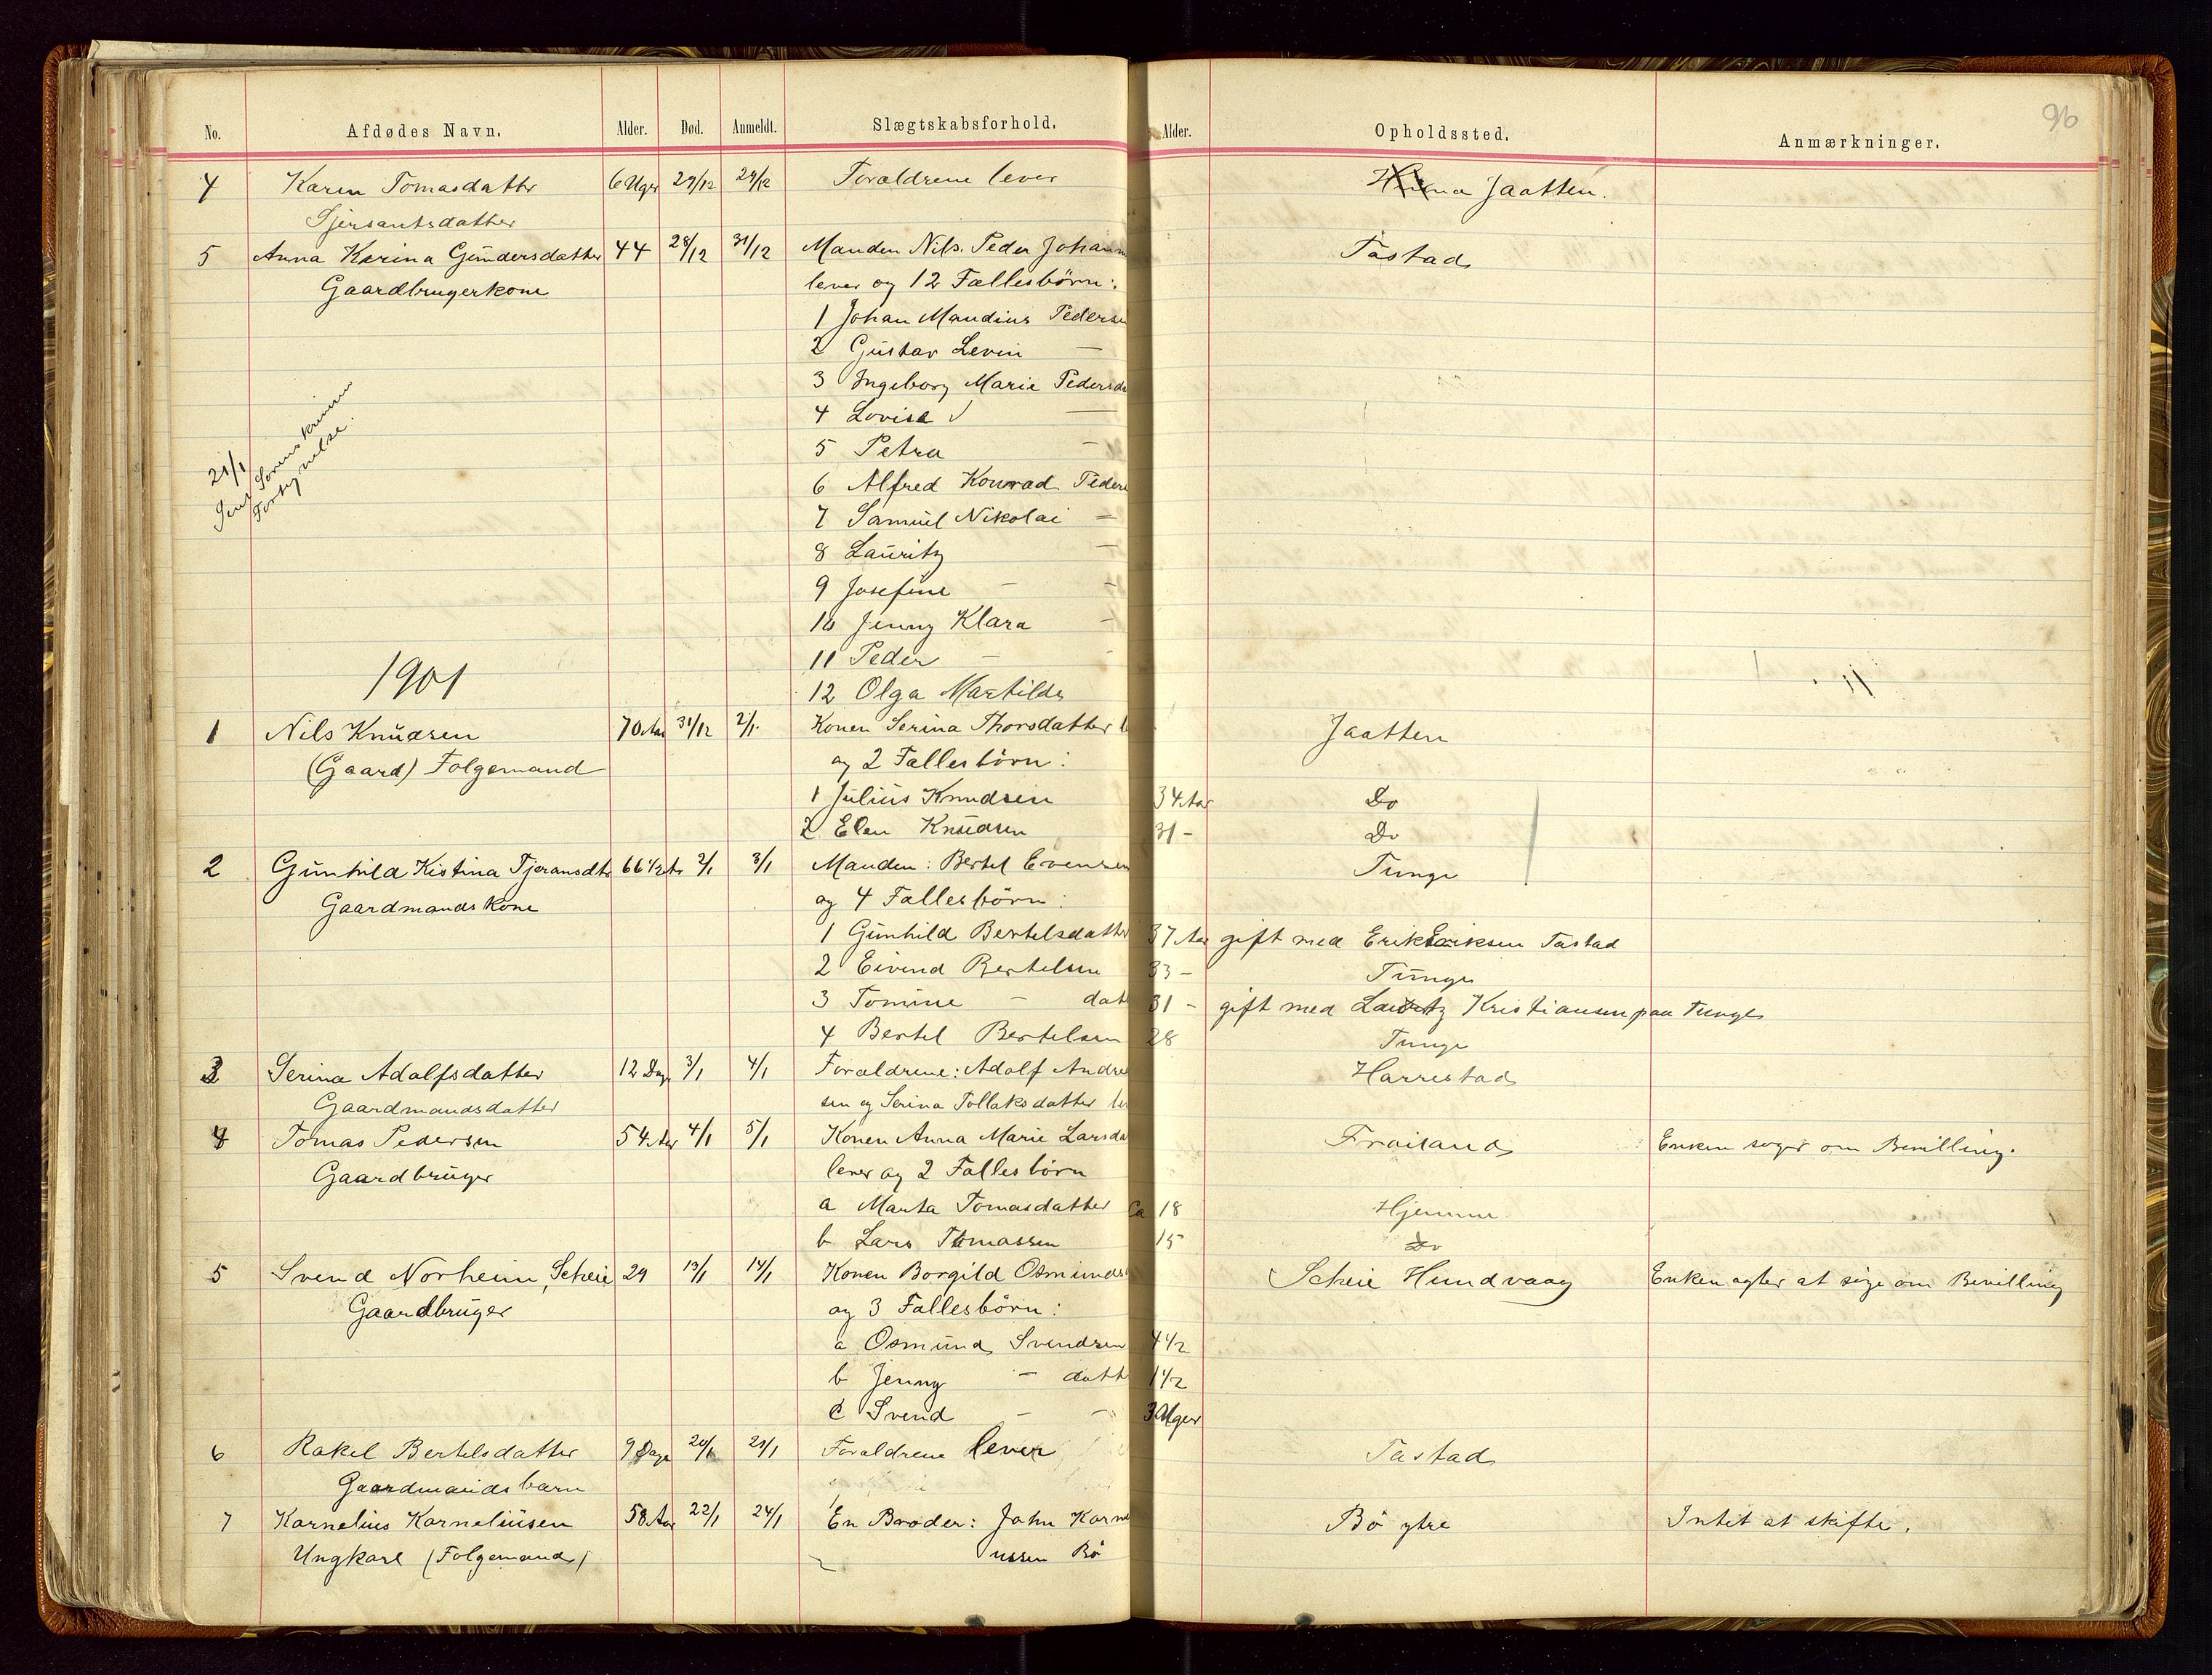 96
No. Afdødes Navn. Alder. Død. Anmeldt. Slægtskabsforhold. Alder. Opholdssted. Anmærkninger.
4 Karen Tomasdatter 6 Uger 27/12 29/12 Forældrene lever Jaatten.
Sjersantsdatter
5 Anna Karina Gundersdatter 44 28/12 31/12 Manden Nils Peder Johann Tastad
Gaardbrugerkone lever og 12 Fællesbörn:
1 Johan Maudius Pederse
2 Gustav Levin —
3 Ingeborg Marie Pedersda
4 Lovise —
5 Petra —
6 Alfred Konrad Peders
7 Samuel Nikolai —
8 Lauritz —
9 Josefine — —
10 Jenny Klara —
11 Peder — -
12 Olga Martilde
21/1
Sorenskriveren
1901
1 Nils Knudsen 70 Aar 31/12 2/1 Konen Serina Thorsdatter l Jaatten
(Gaard) Folgemand og 2 Fællesbörn:
1 Julius Knudsen 34 Aar Do
2 Elen Knudsen 31 - Do
2 Gunhild Kistina Tjeransdtr 66 1/2 Ar 2/1 3/1 Manden: Bertel Evensen Tunge
Gaardmandskone og 4 Fællesbörn:
1 Gunhild Bertelsdatter 37 Aar gift med Erik Eriksen Tastad
2 Eivend Bertelsen 33 - Tunge
3 Tomine — dat 31 - gift med Lauritz Kristiansen paa Tunge
4 Bertel Bertelsen 28 Tunge
3 Serina Adolfsdatter 12 Dage 3/1 4/1 Forældrene: Adolf Andre Harrestad
Gaardmandsdatter sen og Serina Tollaksdatter lev
4 Tomas Pedersen 54 Aar 4/1 5/1 Konen Anna Marie Larsda Froiland Enken søger om Bevilling.
Gaardbruger lever og 2 Fællesbörn
a Marta Tomasdatter Ca 18 Hjemme
b Lars Tomassen 15 Do
5 Svend Norheim, Scheie 29 13/1 14/1 Konen Borgild Osmunds Scheie Hundvaag Enken agter at søge om Bevilling
Gaardbruger og 3 Fællesbörn:
a Osmund Svendsen 4 1/2
b Jenny — datt 1 1/2
c Svend — — 3 Uger
6 Rakel Bertelsdatter 9 Dage 20/1 21/1 Forældrene lever Tastad
Gaardmandsbarn
7 Kornelius Korneliusen 58 Aar 22/1 24/1 En Broder: John Korne Bö ytre Intet at skifte.
Ungkarl (Folgemand) ussen Bö